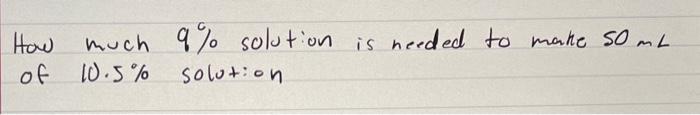 How much 9% solution is needed to make 50 mL
of 10.5% solution